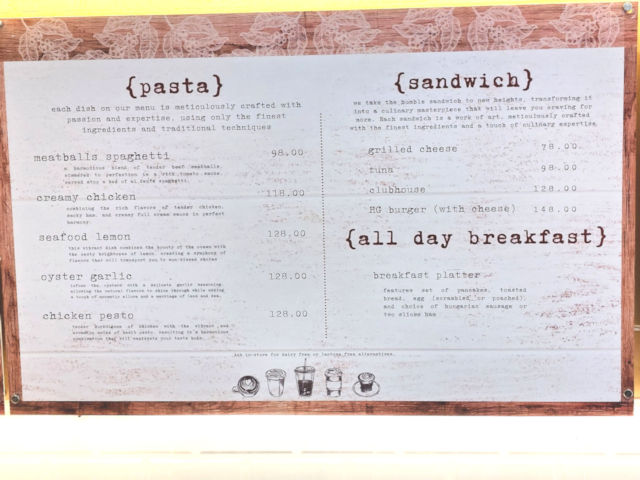 {pasta}
each dish on our menu is meticulously crafted with
passion and expertise, using only the finest
ingredients and traditional techniques
meatballs spaghetti 98.00
a harmonious blend of tender beef meatballs,
simmered to perfection in a rich tomato sauce,
served atop a bed of al dente spaghetti.
creamy chicken 118.00
combining the rich flavors of tender chicken,
smoky ham, and creamy full cream sauce in perfect
harmony.
seafood lemon 128.00
this vibrant dish combines the bounty of the ocean with
the zesty brightness of lemon, creating a symphony of
flavors that will transport you to sun-kissed shores
oyster garlic 128.00
infuse the oysters with a delicate garlic seasoning,
allowing the natural flavors to shine through while adding
a touch of aromatic allure and a marriage of land and sea.
chicken pesto 128.00
tender morsels of chicken with the vibrant and
aromatic notes of basil pesto, resulting in a harmonious
combination that will captivate your taste buds.
{sandwich}
we take the humble sandwich to new heights, transforming it
into a culinary masterpiece that will leave you craving for
more. Each sandwich is a work of art, meticulously crafted
with the finest ingredients and a touch of culinary expertise.
grilled cheese 78.00
tuna 98.00
clubhouse 128.00
HG burger (with cheese) 148.00
{all day breakfast}
breakfast platter
features set of pancakes, toasted
bread, egg (scrambled or poached),
and choice of hungarian sausage or
two slices ham
Ask in-store for dairy free or lactose free alternatives.